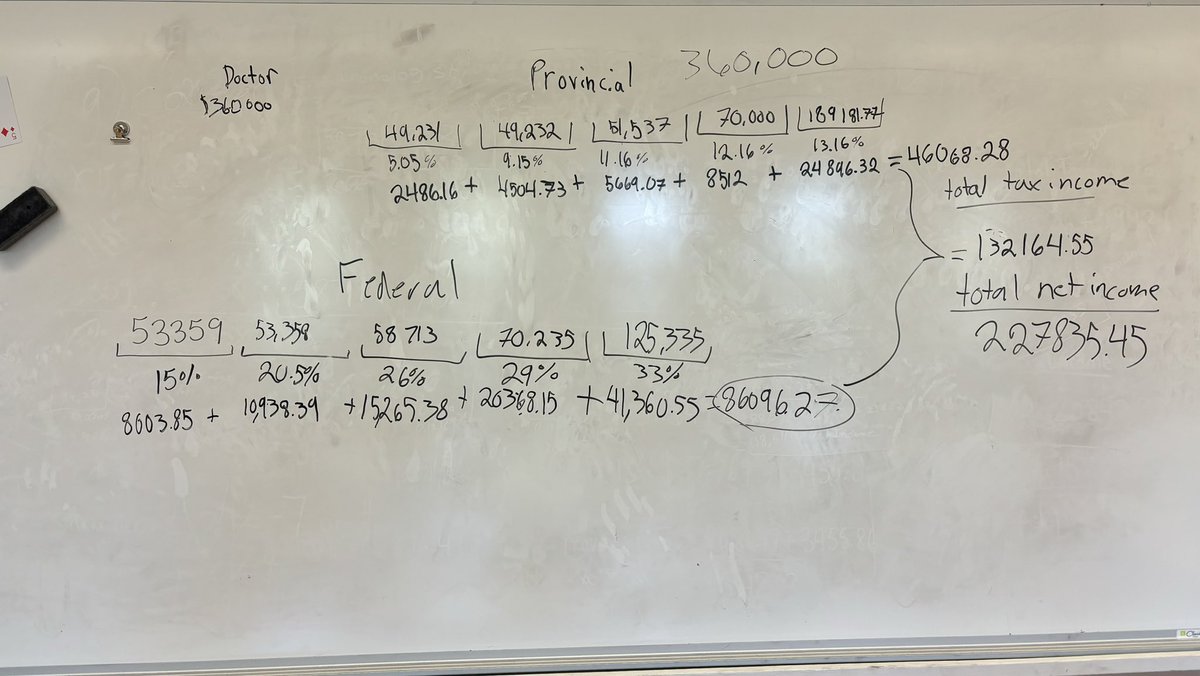 Doctor
$360000
Provincial 360,000
49,231 49,232 51,537 70,000 189181.77
5.05% 9.15% 11.16% 12.16% 13.16%
2486.16 + 4504.73 + 5669.07 + 8512 + 24896.32 = 46068.28
total tax income
= 132164.55
total net income
227835.45
Federal
53359 53,358 58713 70,235 125,335
15% 20.5% 26% 29% 33%
8003.85 + 10,938.39 + 15,265.38 + 20368.15 + 41,360.55 = 86096.27